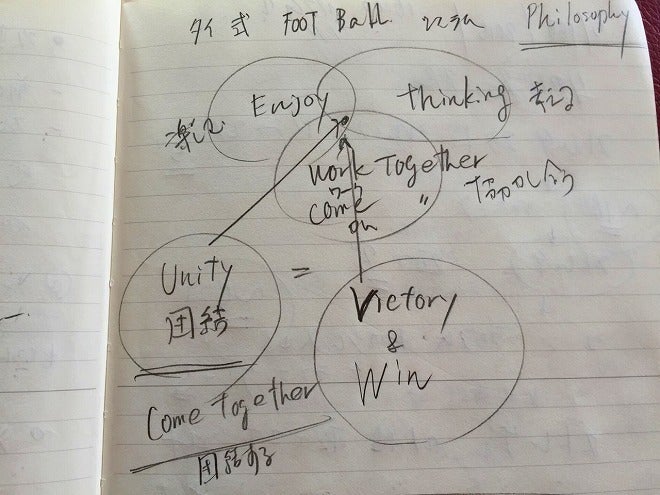 タイ式 FOOT Ball システム Philosophy
Enjoy
楽しむ
thinking 考える
Work Together 協力し合う
ワーク
Come 〃
on
Unity
団結
=
Victory
&
Win
Come Together
団結する